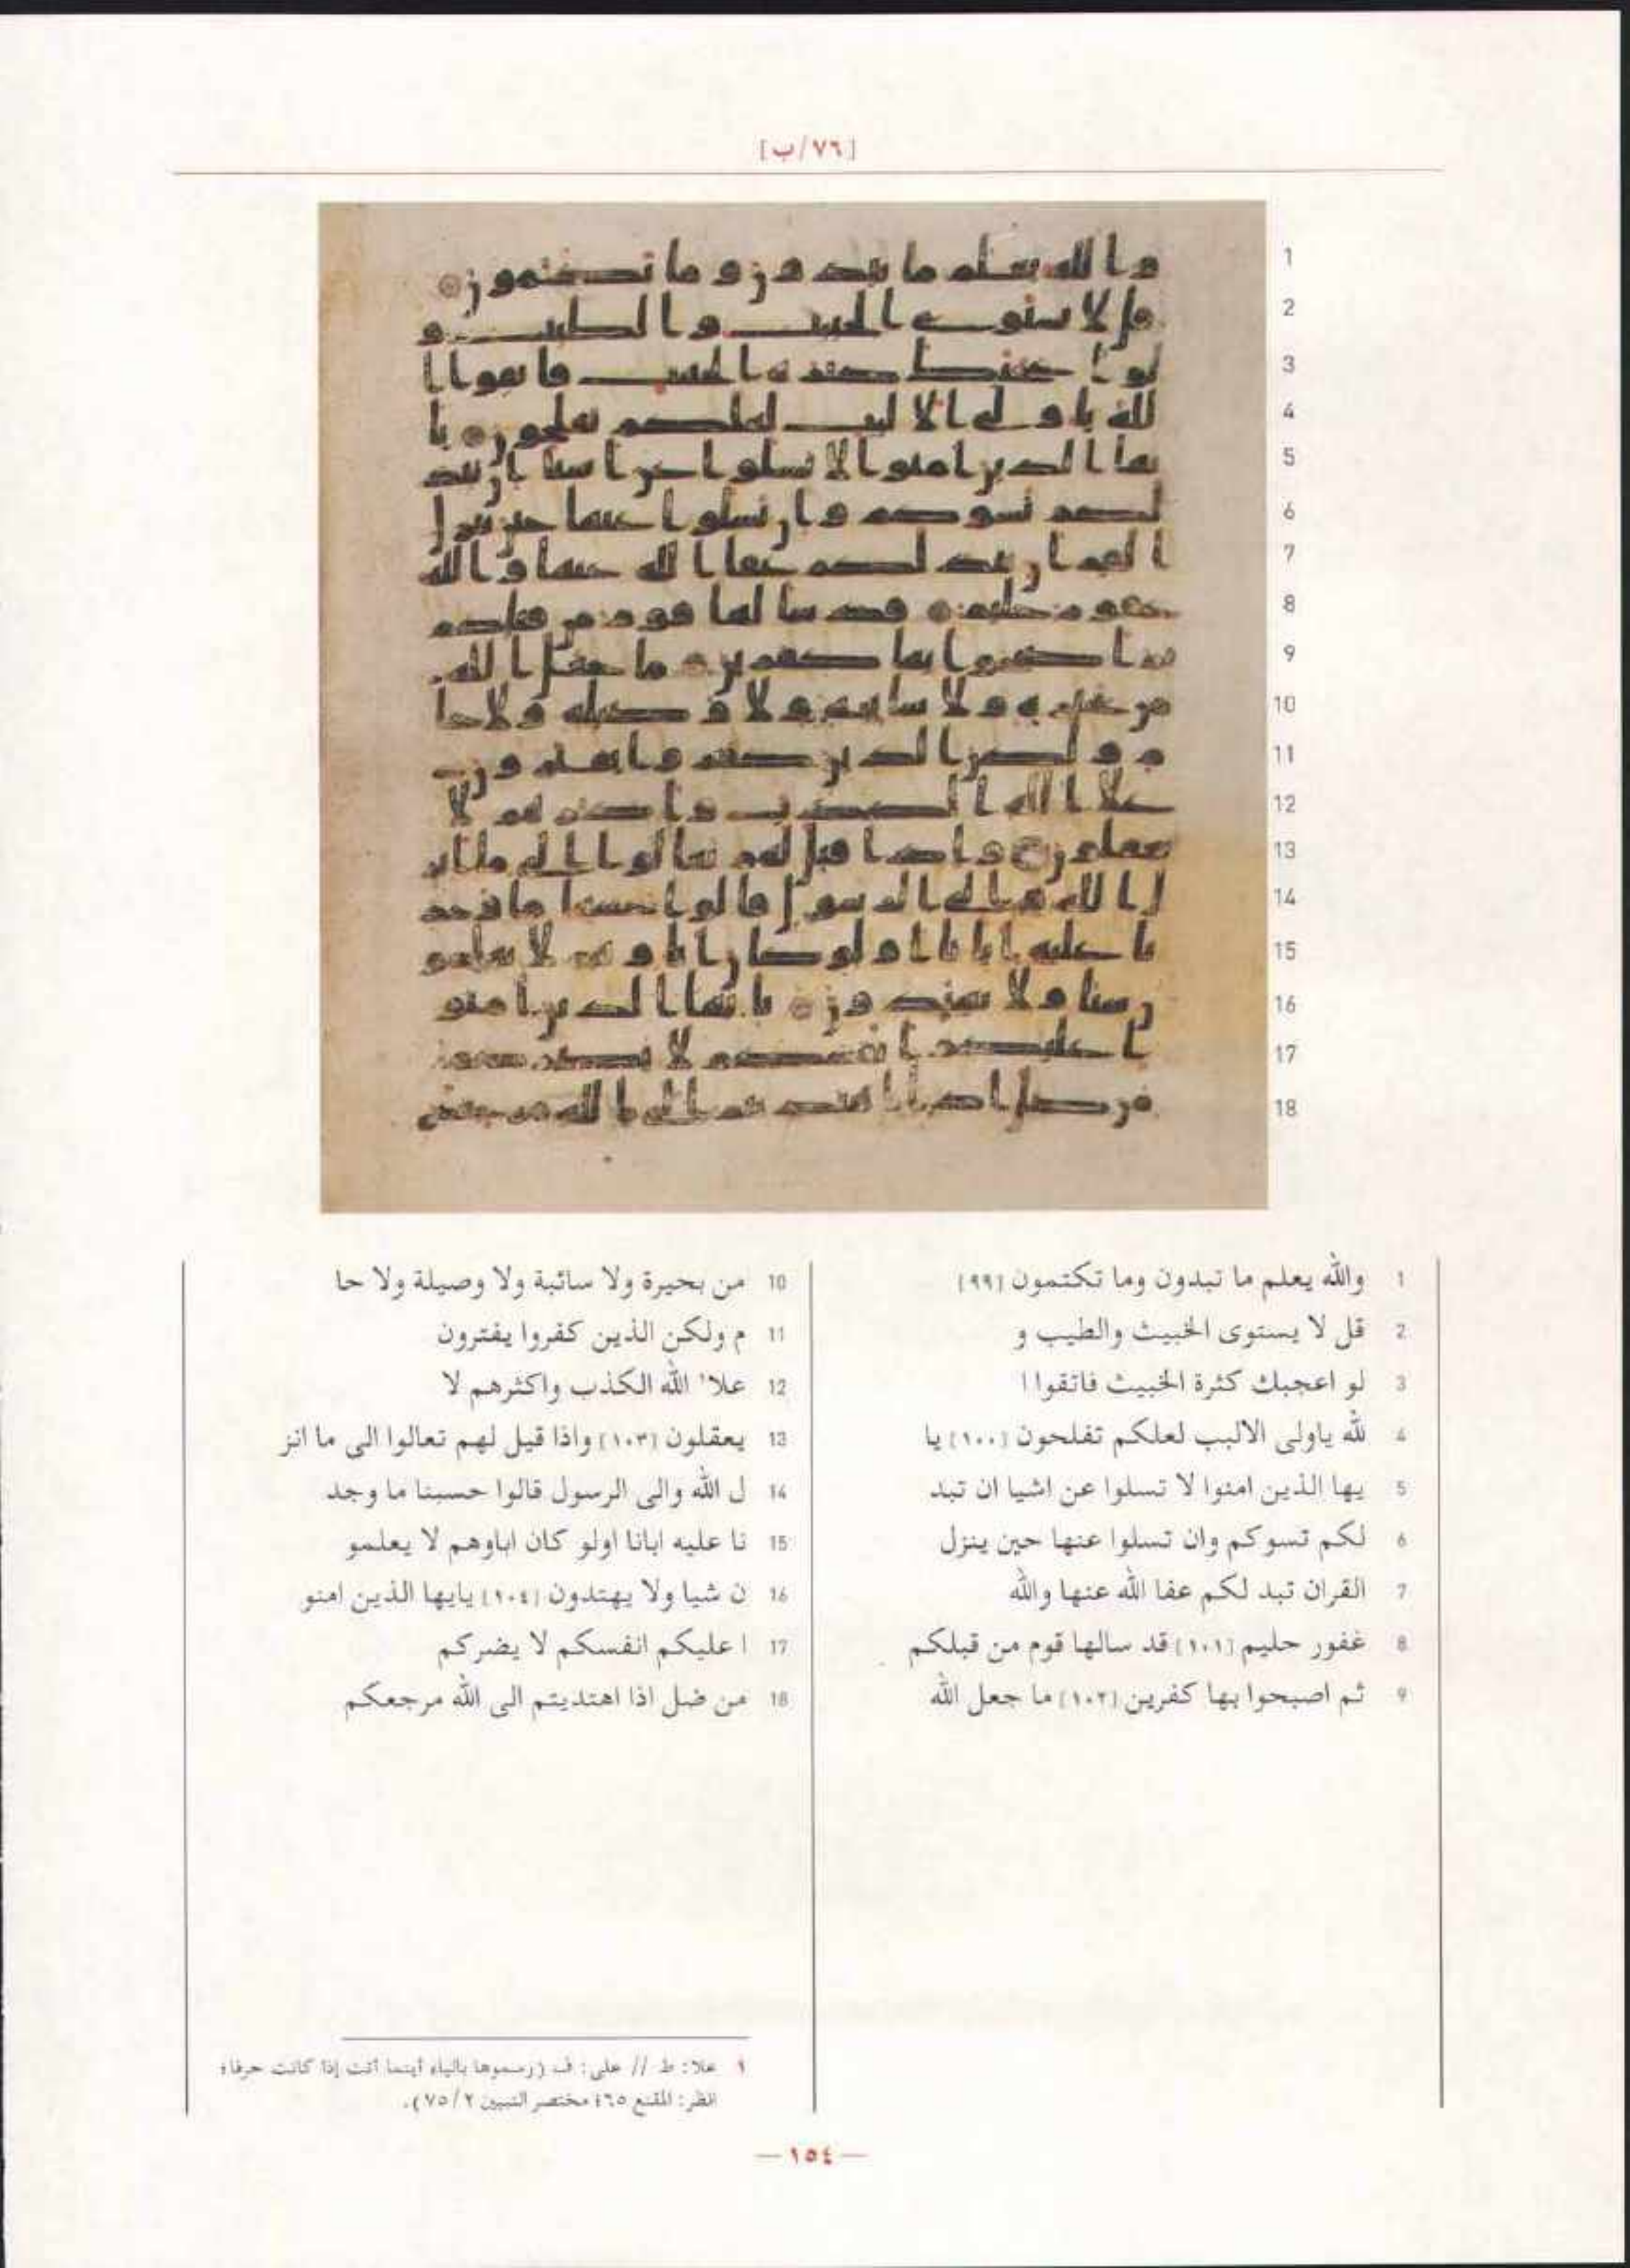 [٧٦/ب]
1 والله يعلم ما تبدون وما تكتمون [٩٩]
2 قل لا يستوى الخبيث والطيب و
3 لو اعجبك كثرة الخبيث فاتقوا ا
4 لله ياولى الالبب لعلكم تفلحون [١٠٠] يا
5 يها الذين امنوا لا تسلوا عن اشيا ان تبد
6 لكم تسوكم وان تسلوا عنها حين ينزل
7 القران تبد لكم عفا الله عنها والله
8 غفور حليم [١٠١] قد سالها قوم من قبلكم
9 ثم اصبحوا بها كفرين [١٠٢] ما جعل الله
10 من بحيرة ولا سائبة ولا وصيلة ولا حا
11 م ولكن الذين كفروا يفترون
12 علا١ الله الكذب واكثرهم لا
13 يعقلون [١٠٣] واذا قيل لهم تعالوا الى ما انز
14 ل الله والى الرسول قالوا حسبنا ما وجد
15 نا عليه ابانا اولو كان اباوهم لا يعلمو
16 ن شيا ولا يهتدون [١٠٤] يايها الذين امنو
17 ا عليكم انفسكم لا يضركم
18 من ضل اذا اهتديتم الى الله مرجعكم
١ علا: ط // على: ف (رسموها بالياء أينما أتت إذا كانت حرفا؛
انظر: المقنع ٦٥؛ مختصر التبيين ٢/ ٧٥).
— ١٥٤ —